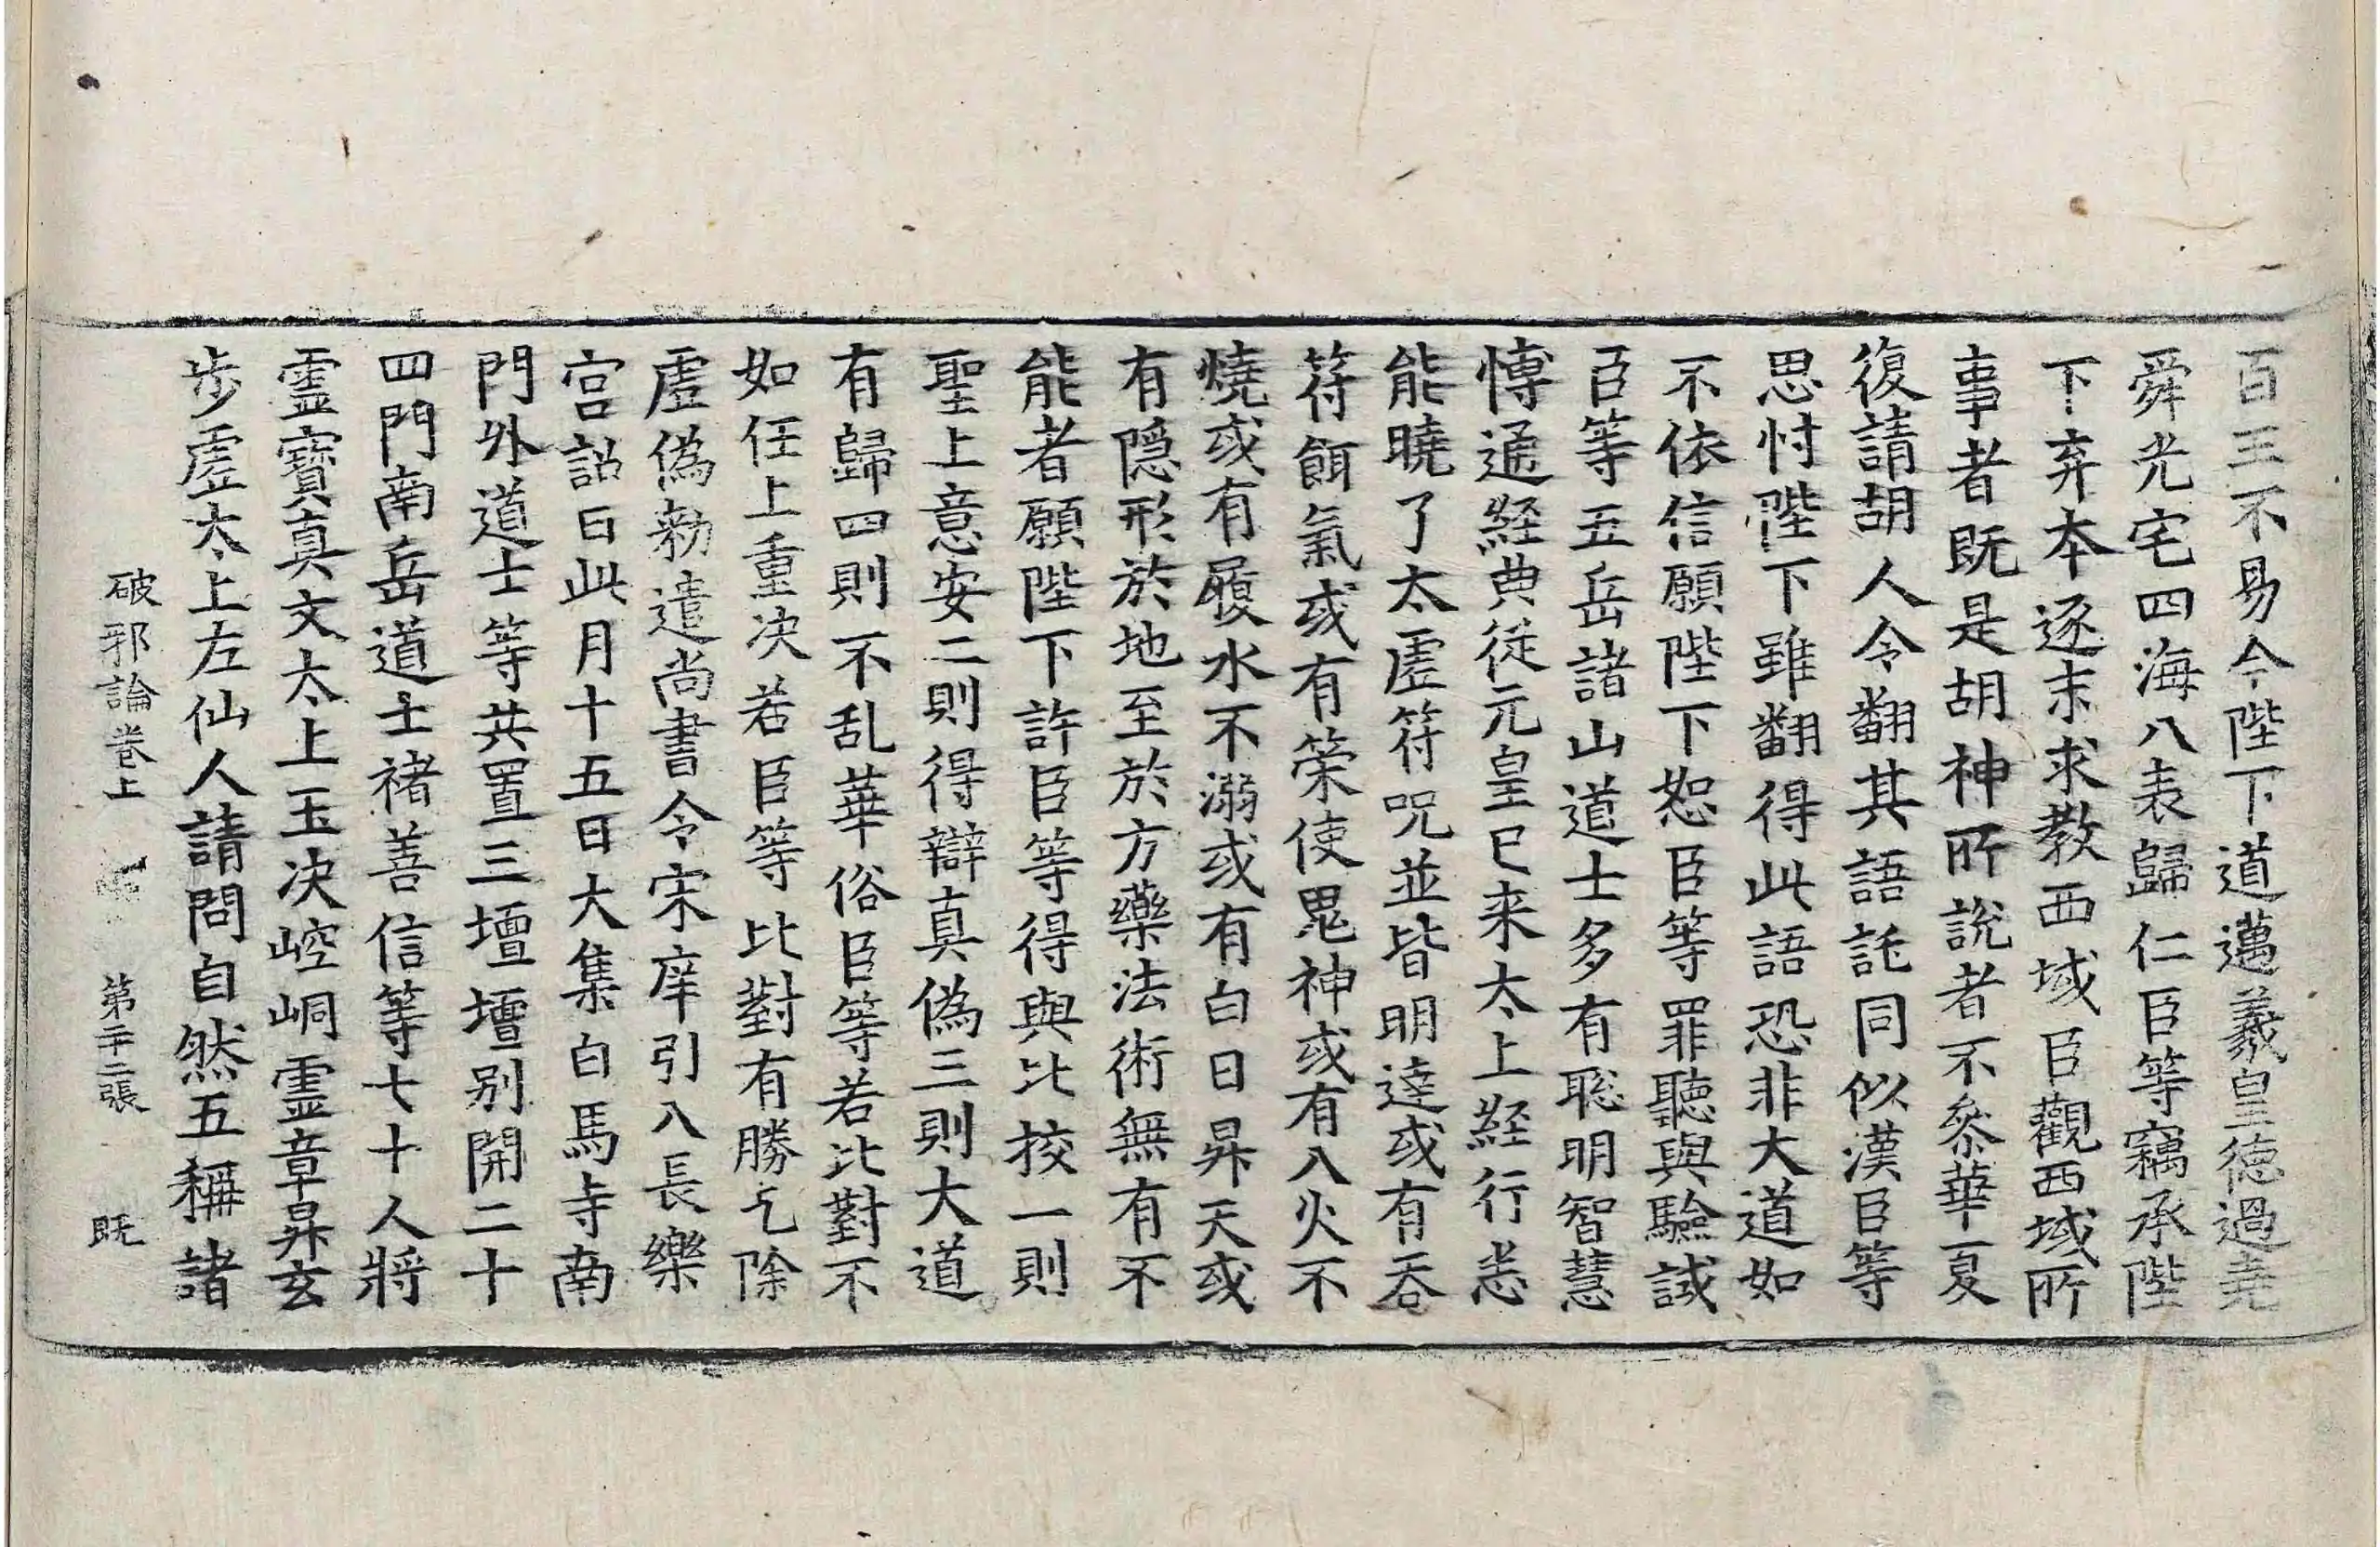 百王不易今陛下道邁羲皇德過堯
舜光宅四海八表歸仁臣等竊承陛
下弃本逐末求教西域臣觀西域所
事者既是胡神所說者不叅華夏
復請胡人令翻其語託同似漢臣等
思忖陛下雖翻得此語恐非大道如
不依信願陛下恕臣等罪聽與驗試
臣等五岳諸山道士多有聡明智慧
博通経典從元皇已来太上経行悉
能曉了太虛符呪並皆明達或有吞
符餌氣或有策使鬼神或有入火不
燒或有履水不溺或有白日昇天或
有隠形於地至於方藥法術無有不
能者願陛下許臣等得與比挍一則
聖上意安二則得辯真偽三則大道
有歸四則不乱華俗臣等若比對不
如任上重决若臣等比對有勝乞除
虛偽勑遣尚書令宋庠引入長樂
宫詔曰此月十五日大集白馬寺南
門外道士等共置三壇壇别開二十
四門南岳道士褚善信等七十人將
靈寶真文太上玉决崆峒靈章昇玄
步虛太上左仙人請問自然五稱諸
破邪論卷上　第二十二張　既